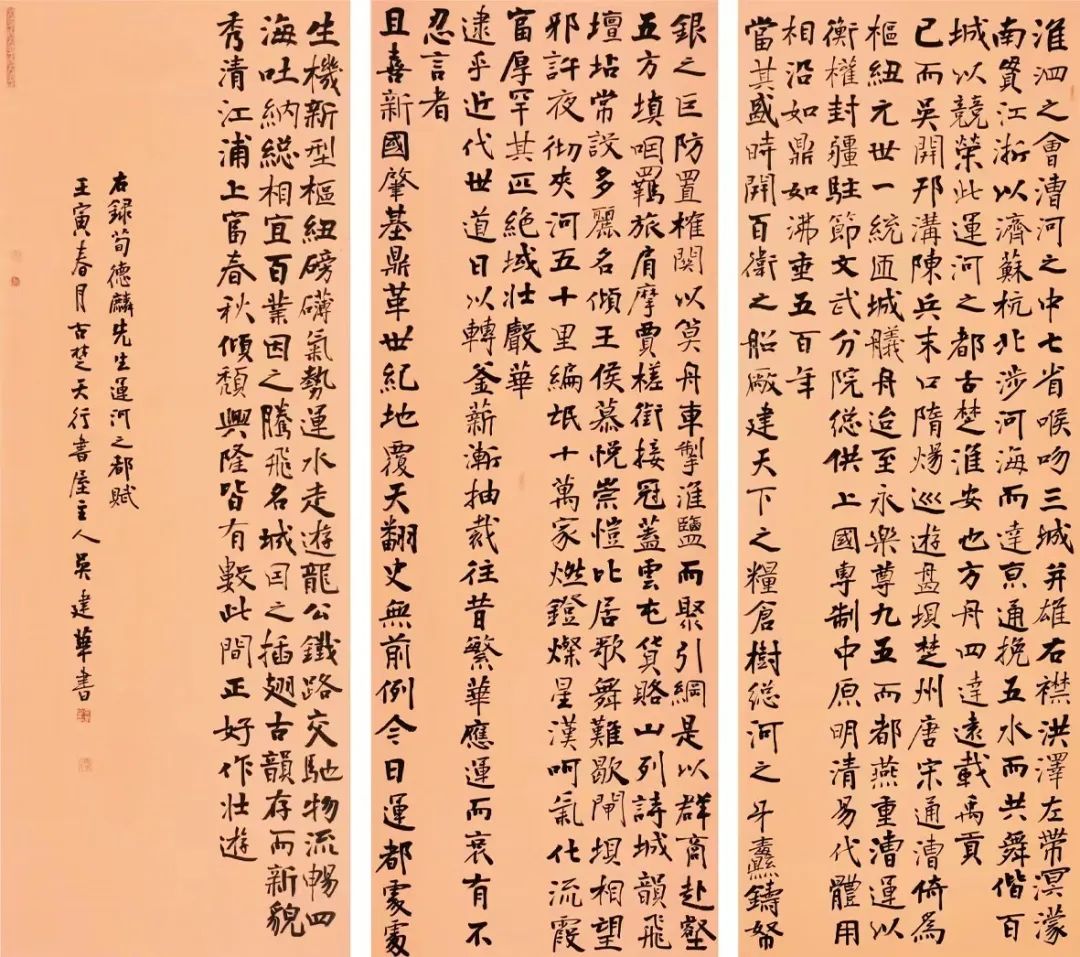 淮泗之會漕河之中七省喉吻三城并雄右襟洪澤左帶溟濛
南貫江浙以濟蘇杭北涉河海而達京通挽五水而共舞偕百
城以競榮此運河之都古楚淮安也方舟四達遠載禹貢
已而吳開邗溝陳兵末口隋煬巡遊盘壩楚州唐宋通漕倚為
樞紐元世一統匝城艤舟迨至永樂尊九五而都燕重漕運以
衡權封疆駐節文武分院總供上國專制中原明清易代體用
相沿如鼎如沸垂五百年
當其盛時開百衛之船廠建天下之糧倉樹總河之牙纛鑄帑
銀之巨防置榷関以筦舟車掣淮鹽而聚引綱是以群商赴壑
五方填咽羈旅肩摩賈槎銜接冠蓋雲屯貨賂山列詩城韻飛
壇坫常設多麗名傾王侯慕悅崇愷比居歌舞難歇閘壩相望
邪許夜彻夾河五十里編氓十萬家燃鐙燦星漢呵氣化流霞
富厚罕其匹絕域壯聲華
逮乎近代世道日以轉釜薪漸抽裁往昔繁華應運而衰有不
忍言者
且喜新國肇基鼎革世紀地覆天翻史無前例今日運都處處
生機新型樞紐磅礴氣勢運水走遊龍公鐵路交馳物流暢四
海吐納総相宜百業因之騰飛名城因之插翅古韻存而新貌
秀清江浦上富春秋傾頹興隆皆有數此間正好作壯遊
右録荀德麟先生運河之都賦
壬寅春月古楚天行書屋主人吳建華書